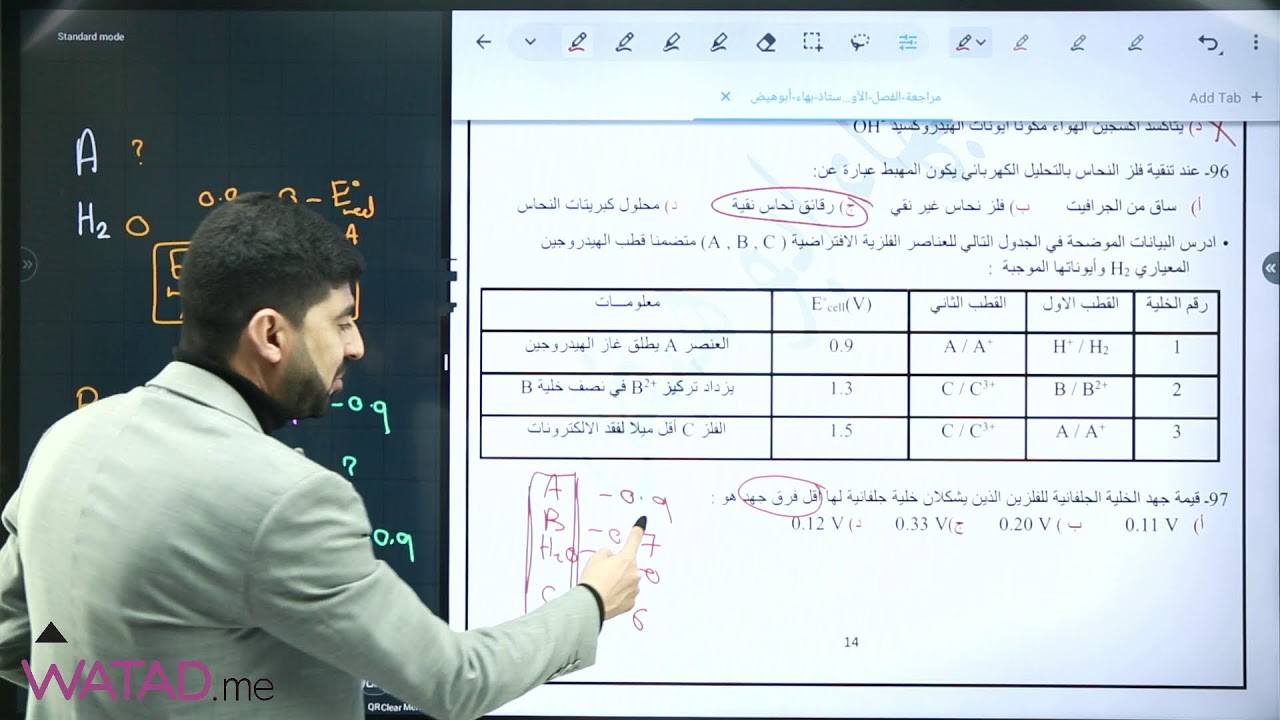 Standard mode
مراجعة-الفصل-الأو...ستاذ-بهاء-أبوهيض
Add Tab +
A ?
H₂ 0
E°red
A
-0.9
?
-0.9
د) يتأكسد أكسجين الهواء مكونا أيونات الهيدروكسيد OH⁻
96- عند تنقية فلز النحاس بالتحليل الكهربائي يكون المهبط عبارة عن:
أ) ساق من الجرافيت ب) فلز نحاس غير نقي ج) رقائق نحاس نقية د) محلول كبريتات النحاس
• ادرس البيانات الموضحة في الجدول التالي للعناصر الفلزية الافتراضية ( A , B , C ) متضمنا قطب الهيدروجين
المعياري H₂ وأيوناتها الموجبة :
رقم الخلية القطب الاول القطب الثاني E°cell(V) معلومـــات
1 H⁺ / H₂ A / A⁺ 0.9 العنصر A يطلق غاز الهيدروجين
2 B / B²⁺ C / C³⁺ 1.3 يزداد تركيز B²⁺ في نصف خلية B
3 A / A⁺ C / C³⁺ 1.5 الفلز C أقل ميلا لفقد الالكترونات
97- قيمة جهد الخلية الجلفانية للفلزين الذين يشكلان خلية جلفانية لها أقل فرق جهد هو :
أ) 0.11 V ب) 0.20 V ج) 0.33 V د) 0.12 V
A -0.9
B -0.7
H₂ 0
C 6
14
WATAD.me